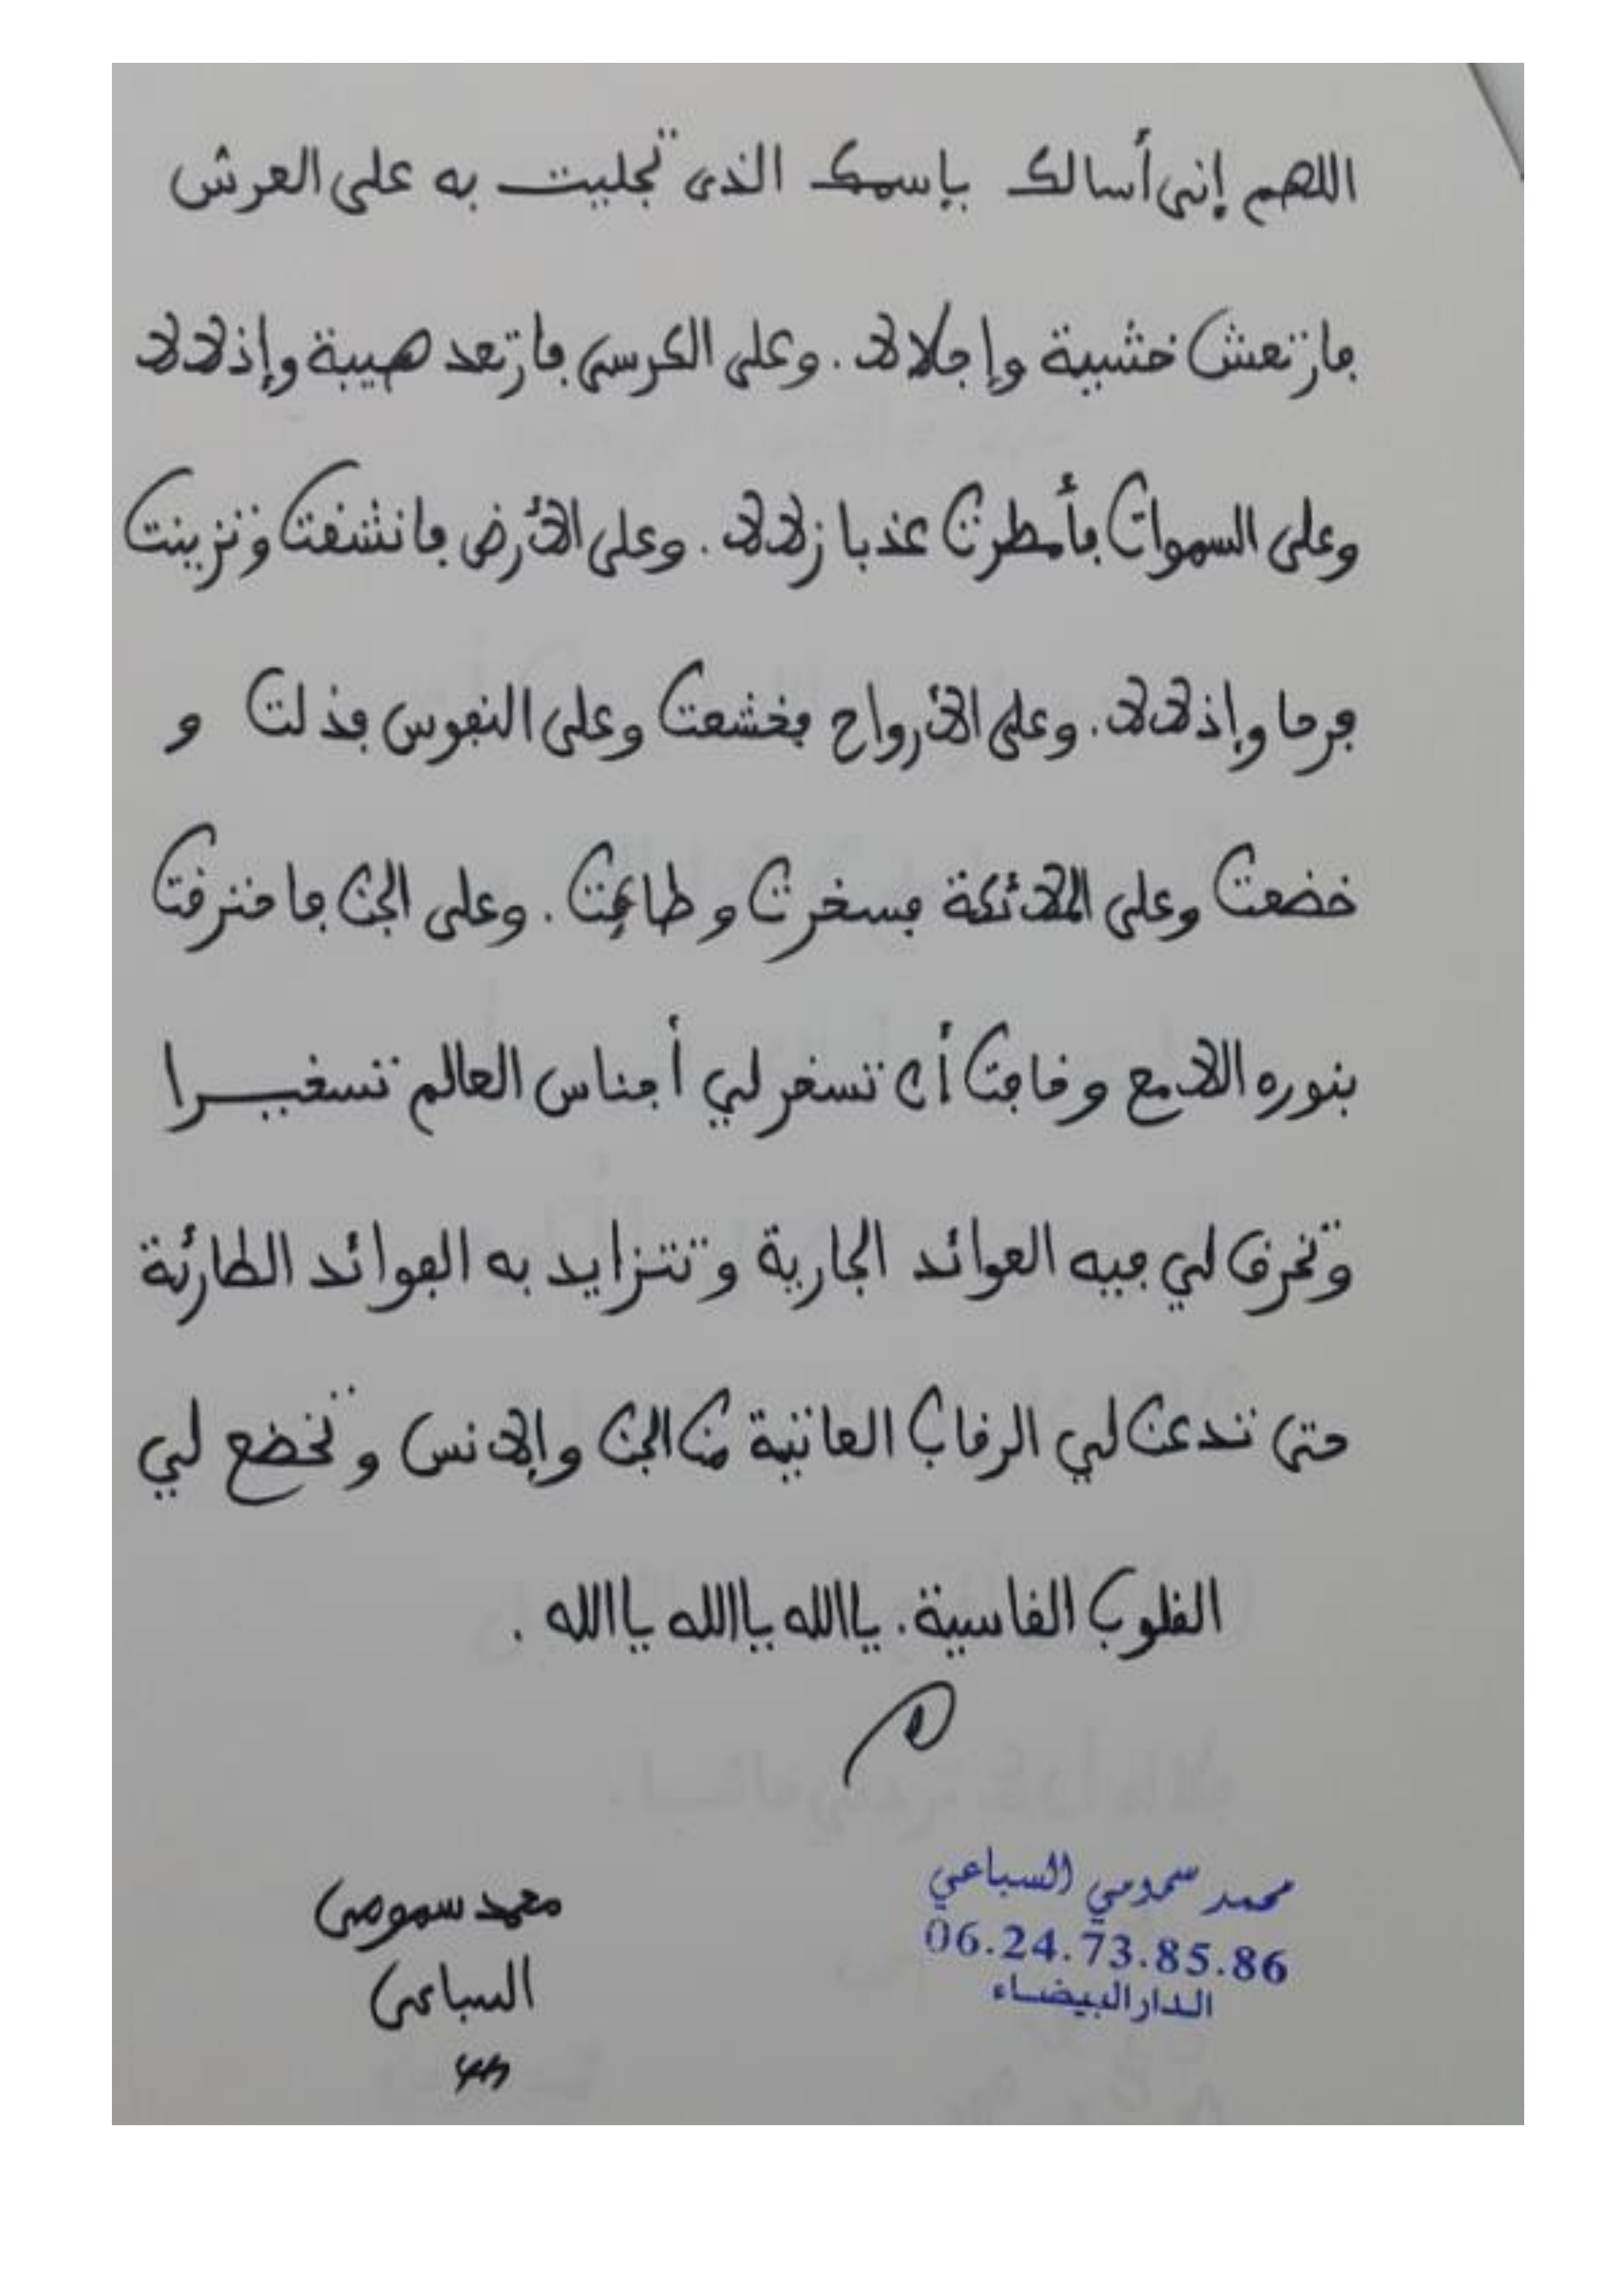 اللهم إنى أسالك بإسمك الذى تجليت به على العرش
فارتعش خشية وإجلالا. وعلى الكرسى فارتعد هيبة وإذلالا
وعلى السموات فأمطرت عذبا زلالا. وعلى الأرض فانشقت وتزينت
فرحا وإذلالا. وعلى الأرواح فخشعت وعلى النفوس فذلت و
خضعت وعلى الملائكة فسخرت وطاعت. وعلى الجن فاحترقت
بنوره اللامع وخافت أن تسخر لي أجناس العالم تسخيرا
وتخرق لي فيه العوائد الجارية وتتزايد به الفوائد الطارئة
حتى تدعن لي الرقاب العاتية من الجن والإنس وتخضع لي
القلوب القاسية. ياالله ياالله ياالله.
محمد سمومي السباعي
06.24.73.85.86
الدار البيضاء
محمد سمومى
السباعى